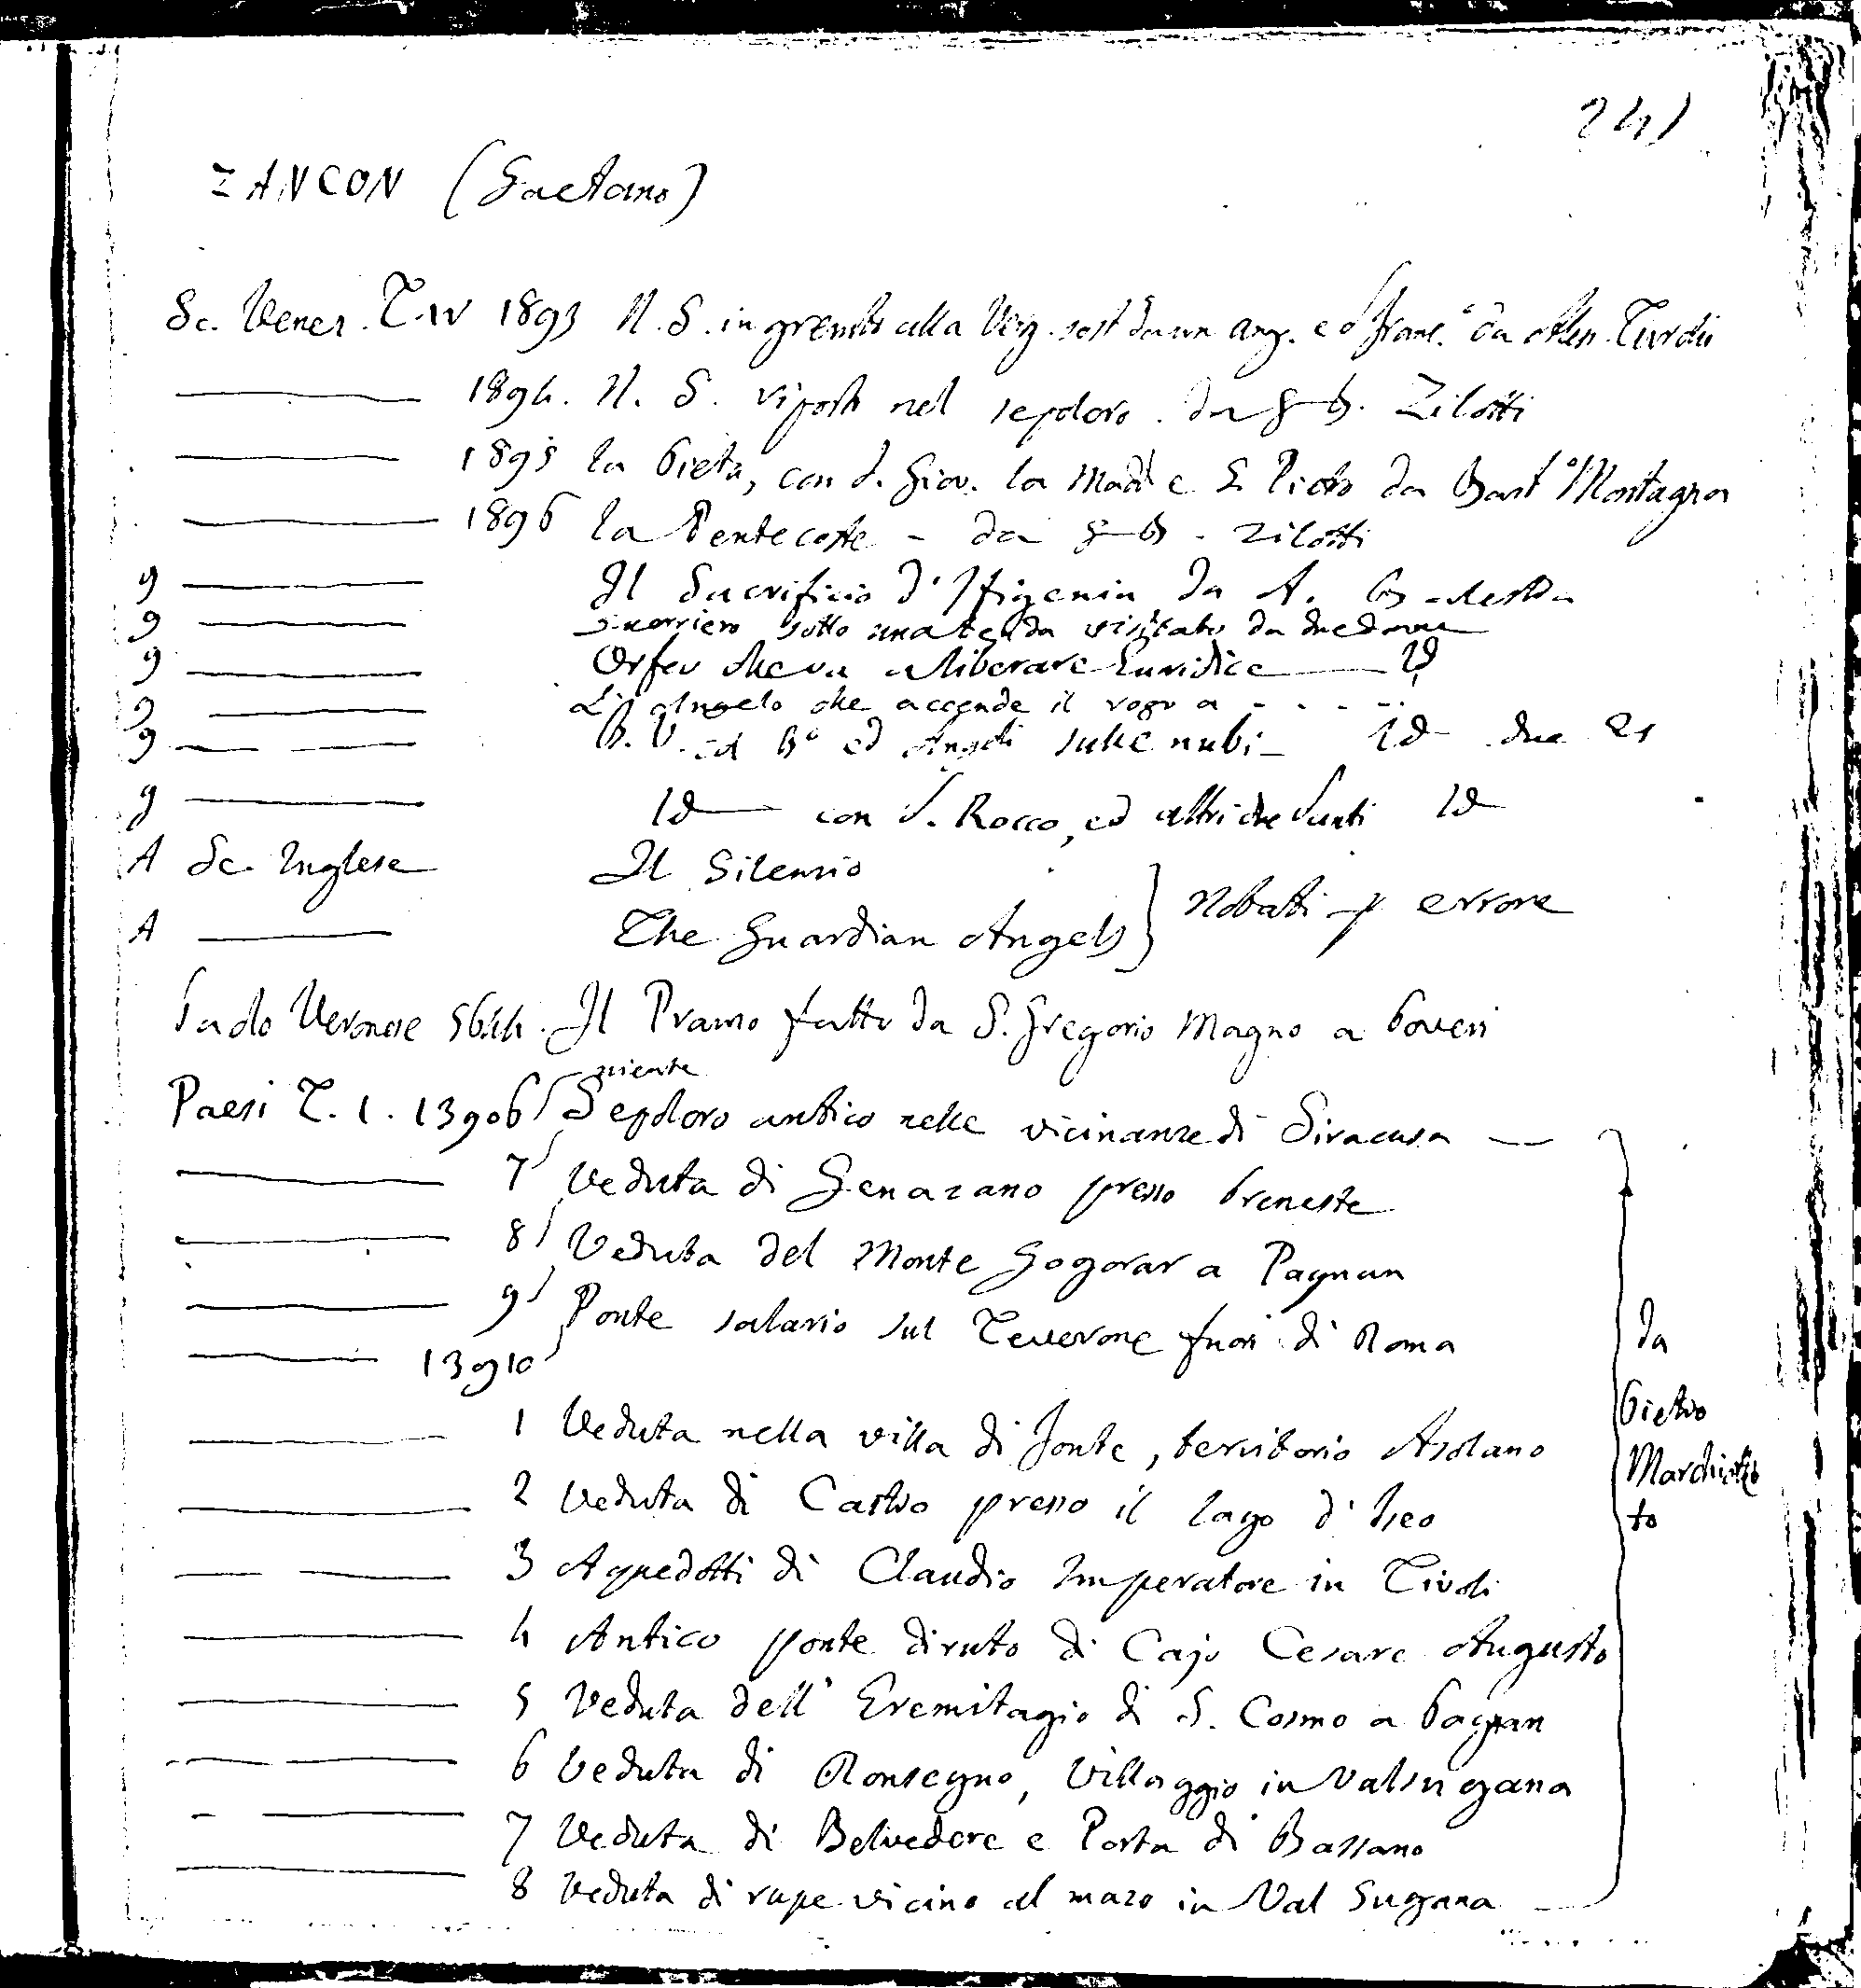 241
ZANCON (Gaetano)
Sc. Venez. T. IV 1893 N. S. in grembo alla Verg. sost da un ang. e S. Franc.º da Ales. Turchi
1894. N. S. riposto nel sepolcro. da G B. Zilotti
1895 la Pietà, con S. Giov. la Madd e S. Pietro da Bartº Montagna
1896 la Pentecoste - da G B. Zilotti
9 Il Sacrificio d'Ifigenia da A. Balestra
9 Guerriero sotto una tenda visitato da due donne
9 Orfeo che va a liberare Euridice Id
9 L'Angelo che accende il rogo a - - - -
9 B. V. col Bº ed Angeli sulle nubi - Id due
9 Id con S. Rocco, ed altri due Santi Id
A Sc. Inglese Il Silenzio
A The Guardian Angels } Notati p errore
Paolo Veronese 5644. Il Pranzo fatto da S. Gregorio Magno a Poveri
niente
Paesi T. 1. 13906 Sepolcro antico nelle vicinanze di Siracusa
7 Veduta di Genazano presso Preneste
8 Veduta del Monte Gogorar a Pagnan
9 Ponte salario sul Teverone fuori di Roma
13910
1 Veduta nella villa di Fonte, territorio Asolano
2 Veduta di Castro presso il lago d'Iseo
3 Aquedotti di Claudio Imperatore in Tivoli
4 Antico ponte diruto di Cajo Cesare Augusto
5 Veduta dell'Eremitagio di S. Cosmo a Pagnan
6 Veduta di Ronsegno, Villaggio in Valsugana
7 Veduta di Belvedere e Porta di Bassano
8 Veduta di rupe vicino al mazo in Val Sugana
da
Pietro